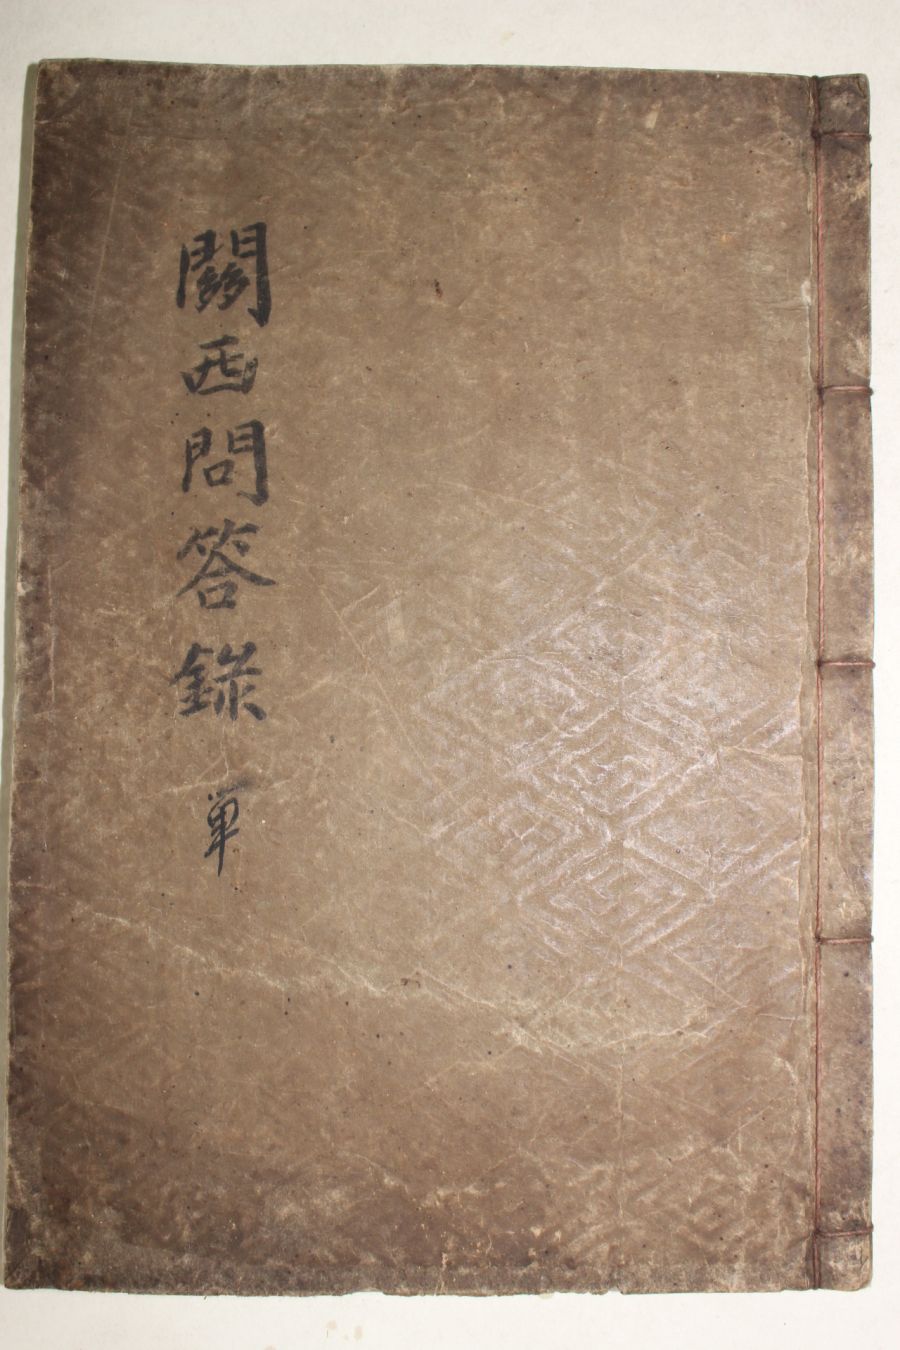 關西問答錄 単